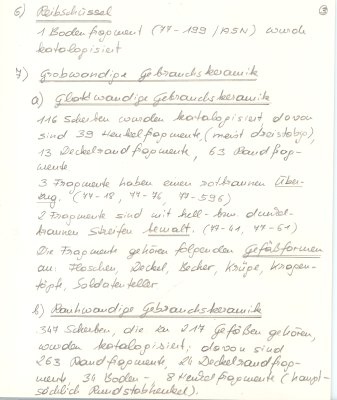 6) Reibschüssel ③
1 Bodenfragment (77-199/ASN) wurde
katalogisiert
7) Grobwandige Gebrauchskeramik
a) Glattwandige Gebrauchskeramik
116 Scherben wurden katalogisiert, davon
sind 39 Henkelfragmente, (meist dreistabig),
13 Deckelrandfragmente, 63 Randfrag-
mente
3 Fragmente haben einen rotbraunen Über-
zug. (77-18, 77-76, 77-596)
2 Fragmente sind mit hell- bzw. dunkel-
braunen Streifen bemalt. (77-41, 77-61)
Die Fragmente gehören folgenden Gefäßformen
an: Flaschen, Deckel, Becher, Krüge, Kragen-
töpfe, Soldatenteller.
b) Rauhwandige Gebrauchskeramik
347 Scherben, die zu 217 Gefäßen gehören,
wurden katalogisiert, davon sind
263 Randfragmente, 24 Deckelrandfrag-
mente, 34 Boden-, 8 Henkelfragmente (haupt-
sächlich Rundstabhenkel).